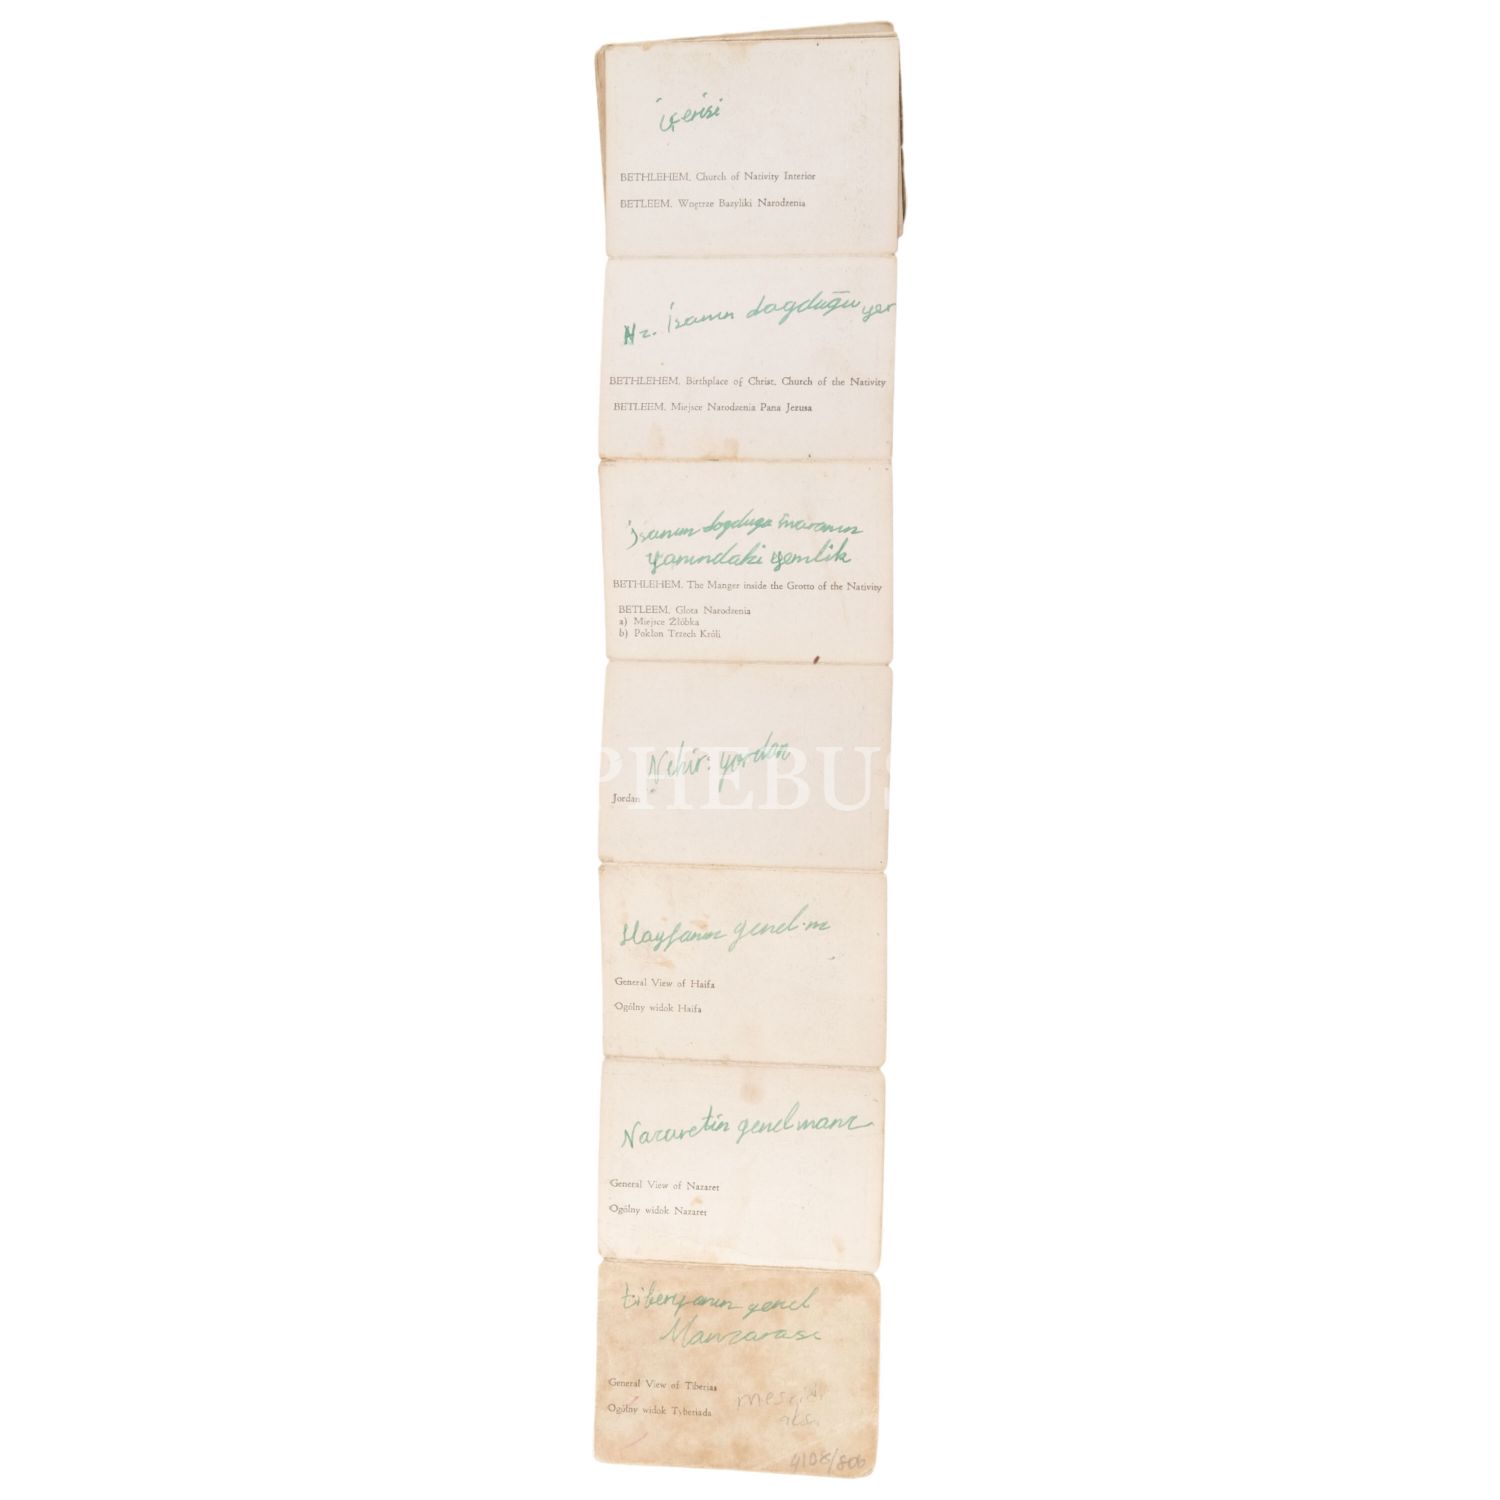 içerisi
BETHLEHEM. Church of Nativity Interior
BETLEEM. Wnętrze Bazyliki Narodzenia
Hz. İsanın dogduğu yer
BETHLEHEM. Birthplace of Christ. Church of the Nativity
BETLEEM. Miejsce Narodzenia Pana Jezusa
İsanın dogdugu maranın
yanındaki yemlik
BETHLEHEM. The Manger inside the Grotto of the Nativity
BETLEEM. Glota Narodzenia
a) Miejsce Żłóbka
b) Pokłon Trzech Króli
Nehir: yordan
Jordan
PHEBUS
Hayfanın genel m
General View of Haifa
Ogólny widok Haifa
Nazaretin genel manz
General View of Nazaret
Ogólny widok Nazaret
tiberyanın genel
Manzarası
General View of Tiberias
Ogólny widok Tyberiada
4108/806